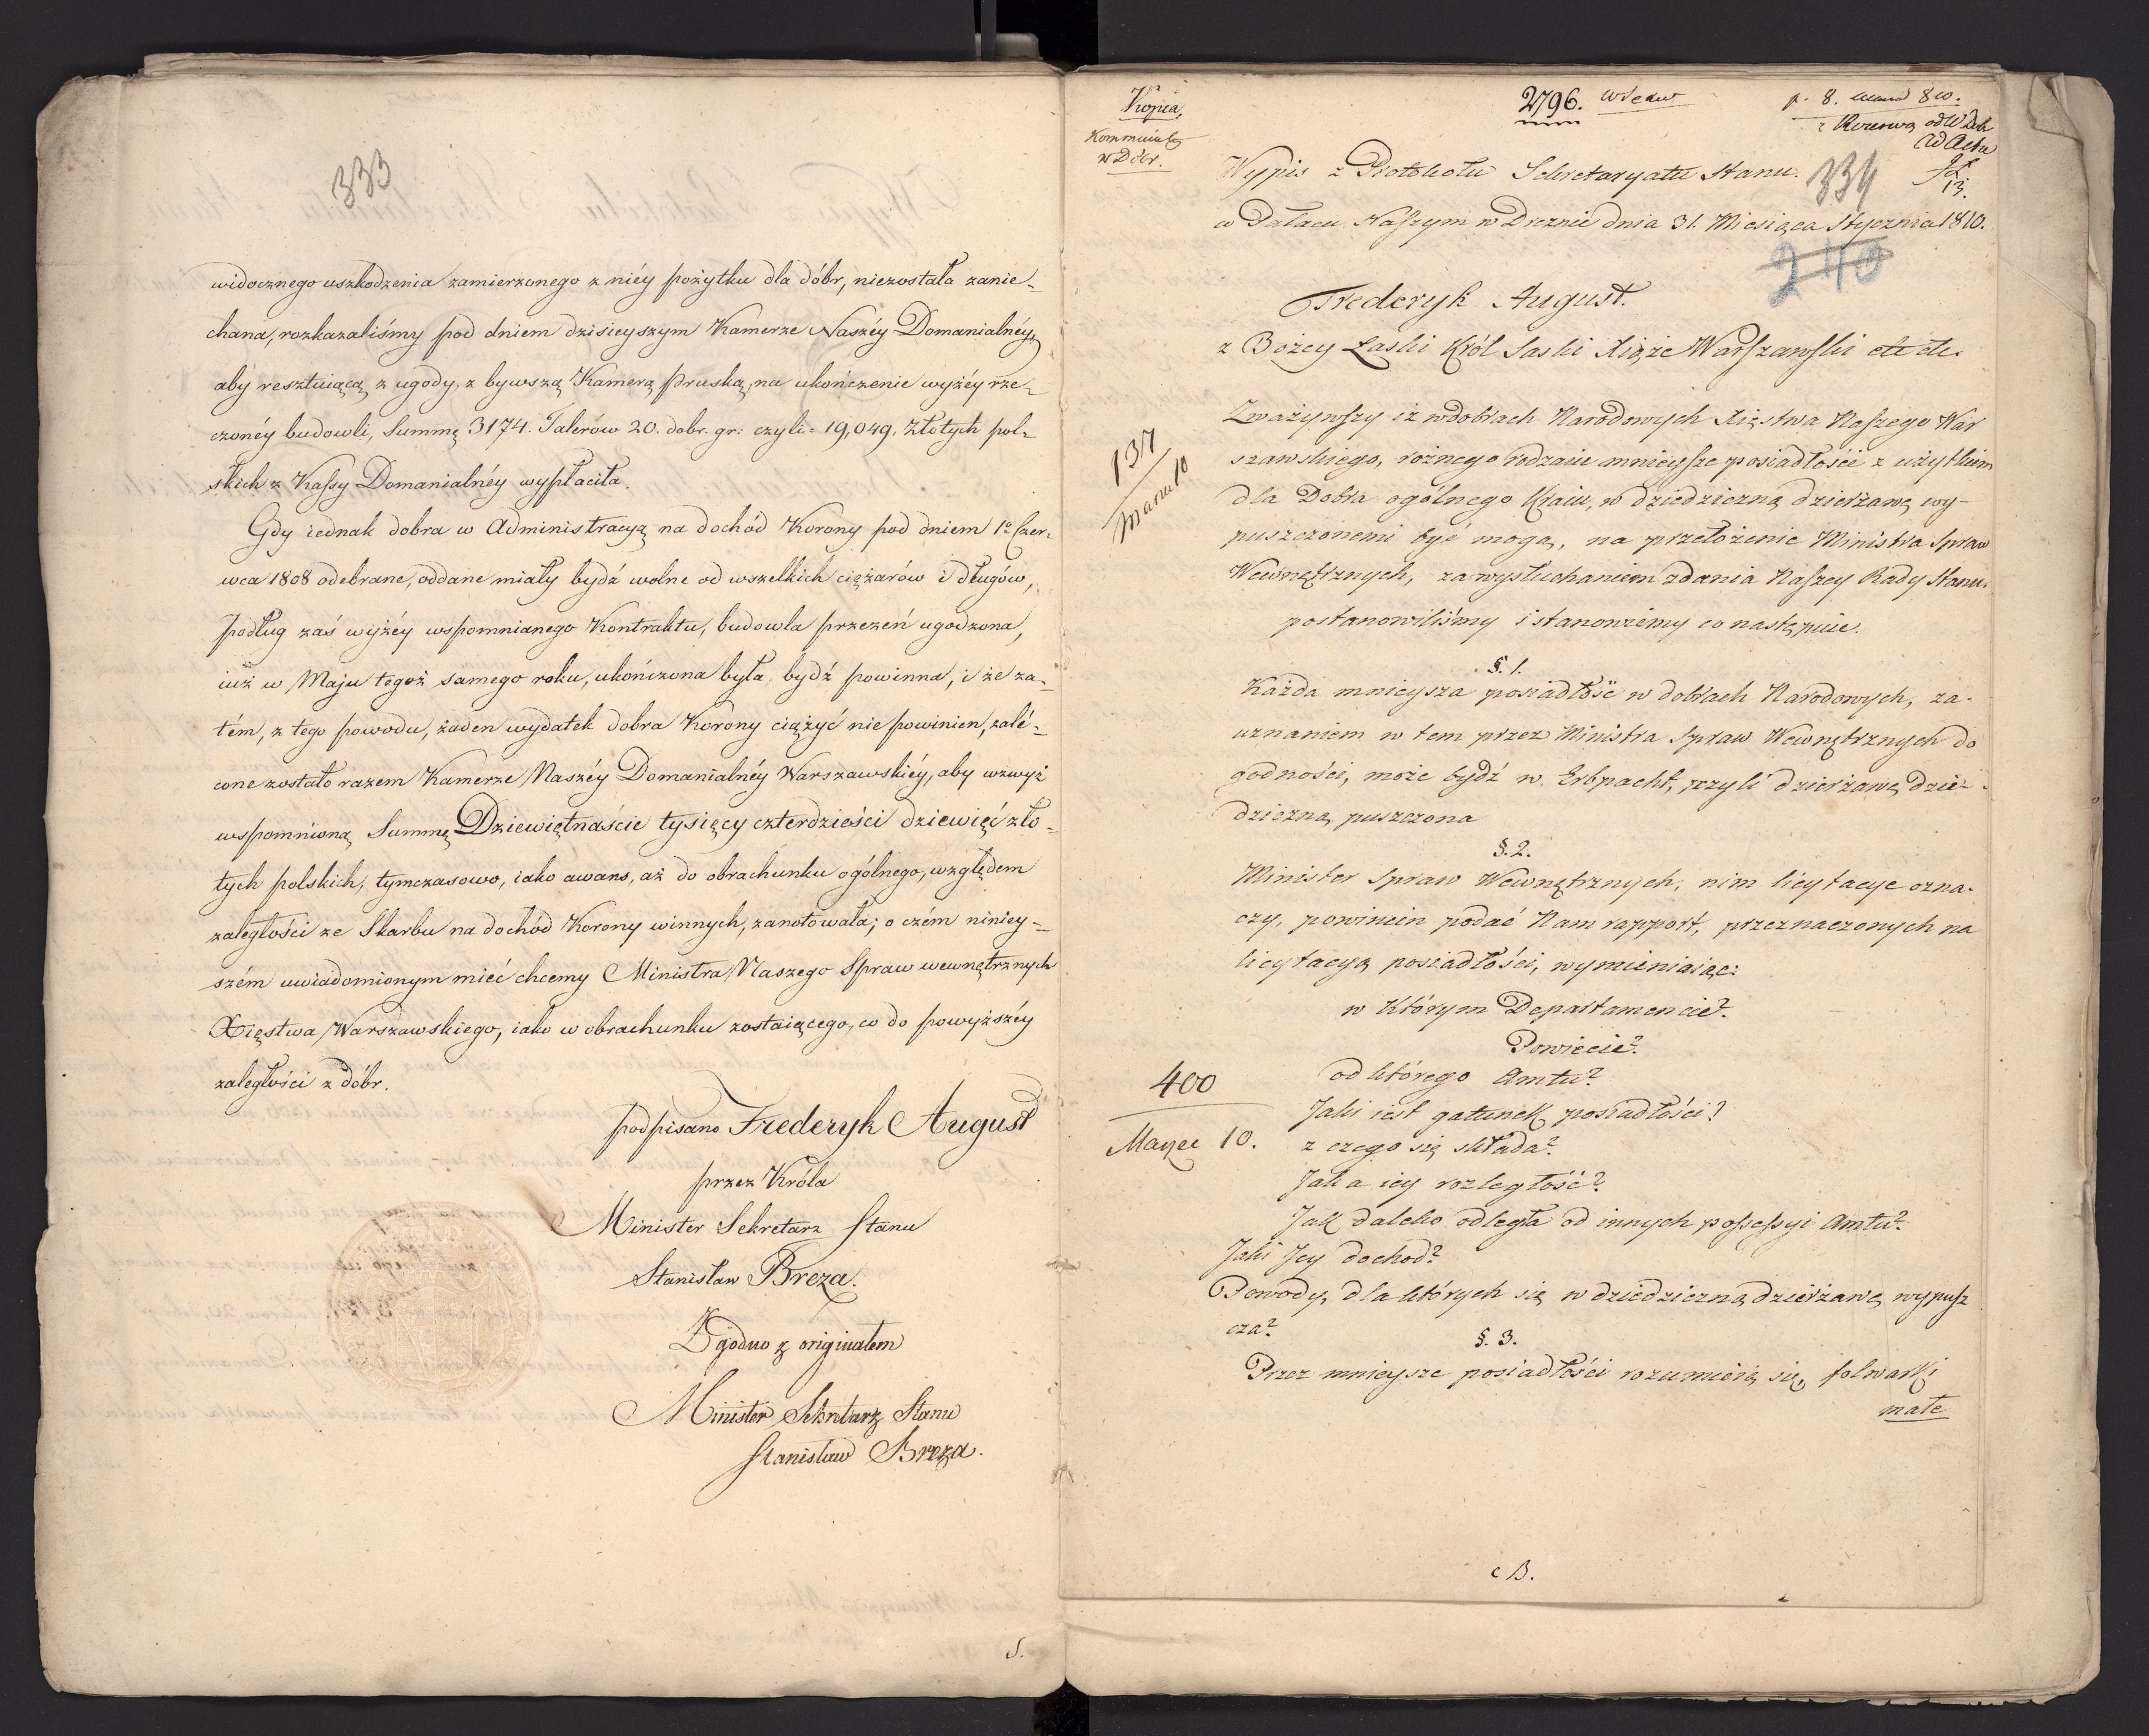 333
widocznego uszkodzenia zamierzonego z niéy pożytku dla dóbr, niezostała zanie-
chana, rozkazaliśmy pod dniem dzisieyszym Kamerze Naszéy Domanialnéy,
aby resztuiącą z ugody, z bywszą Kamerą pruską, na ukończenie wyżéy rze-
czonéy budowli, Summę 3174. Talerów 20. dobr. gr: czyli 19,049. Złotych pol-
skich z Kassy Domanialnéy wypłaciła.
Gdy iednak dobra w Administracyą na dochód Korony pod dniem 1º Czer-
wca 1808 odebrane, oddane miały bydź wolne od wszelkich ciężarów i długów,
podług zaś wyżéy wspomnianego Kontraktu, budowla przezeń ugodzona,
iuż w Maju tegoż samego roku, ukończona była bydź powinna, i że za-
tém, z tego powodu, żaden wydatek dobra Korony ciążyć nie powinien, zalé-
cone zostało razem Kamerze Naszéy Domanialnéy Warszawskiéy, aby wzwyż
wspomnioną Summę Dziewiętnaście tysięcy czterdzieści dziewięć zło-
tych polskich, tymczasowo, iako awans, aż do obrachunku ogólnego, względem
zaległości ze Skarbu na dochód Korony winnych, zanotowała; o czém niniey-
szém uwiadomionym mieć chcemy Ministra Naszego Spraw wewnętrznych
Xięstwa Warszawskiego, iako w obrachunku zostaiącego, co do powyższéy
zaległości z dóbr.
podpisano Frederyk August
przez Króla
Minister Sekretarz Stanu
Stanisław Breza.
Zgodno z originałem
Minister Sekretarz Stanu
Stanisław Breza.
S.
Kopiia,
w Dóbr.
2796.
p. 8. 810.
ad Acta
13.
Wypis z Protokołu Sekretaryatu Stanu.
334
w Pałacu Naszym w Dreznie dnia 31. Miesiąca Stycznia 1810.
240
Frederyk August.
z Bożey Łaski Król Saski Xiąże Warszawski etc etc.
137
Marca 10
Zważywszy iż w dobrach Narodowych Xięstwa Naszego War
szawskiego, rożnego rodzaiu mnieysze posiadłości z użytkiem
dla Dobra ogólnego Kraiu, w dziedziczną dzierżawę wy-
puszczonemi być mogą, na przełożenie Ministra Spraw
Wewnętrznych, za wysłuchaniem zdania Naszey Rady Stanu.
postanowiliśmy i stanowiemy co następuie.
§. 1.
Każda mnieysza posiadłość w dobrach Narodowych, za
uznaniem w tem przez Ministra Spraw Wewnętrznych do
godności, może bydź w Erbpacht, czyli dzierżawę dzie-
dziczną puszczona
§. 2.
Minister Spraw Wewnętrznych, nim licytacye ozna-
czy, powinien podać Nam rapport, przeznaczonych na
licytacyą posiadłości, wymieniaiąc:
w którym Departamencie?
Powiecie?
od którego Amtu?
400
Marzec 10.
Jaki iest gatunek posiadłości?
z czego się składa?
Jaka iey rozległość?
Jak daleko odległa od innych possessyi Amtu?
Jaki Jey dochod?
Powody, dla których się w dziedziczną dzierżawę wypusz
cza?
§. 3.
Przez mnieysze posiadłości rozumieią się, folwarki
małe